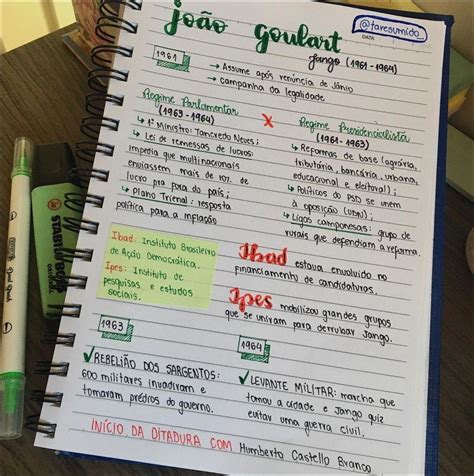 @taresumido
DATA
joão goulart
Jango (1961 - 1964)
1961
↳ Assume após renúncia de Jânio
↳ campanha da legalidade
Regime Parlamentar
(1963 - 1964)
↳ 1º Ministro: Tancredo Neves;
↳ Lei de remessas de lucros:
impedia que multinacionais
enviassem mais de 10% de
lucro pra fora do país;
↳ Plano Trienal: resposta
política para a inflação
X
Regime Presidencialista
(1961 - 1963)
↳ Reformas de base (agrária,
tributária, bancária, urbana,
educacional e eleitoral);
↳ Políticos do PSD se unem
à oposição (UDN);
↳ Ligas camponesas: grupo de
rurais que defendiam a reforma.
Ibad: Instituto Brasileiro
de Ação Democrática.
Ipes: Instituto de
pesquisas e estudos
sociais.
Ibad estava envolvido no
financiamento de candidaturas.
Ipes mobilizou grandes grupos
que se uniram para derrubar Jango.
1963
✓REBELIÃO DOS SARGENTOS:
600 militares invadiram e
tomaram prédios do governo.
1964
✓LEVANTE MILITAR: marcha que
tomou a cidade e Jango quiz
evitar uma guerra civil.
INÍCIO DA DITADURA COM Humberto Castello Branco
STABILO BOSS